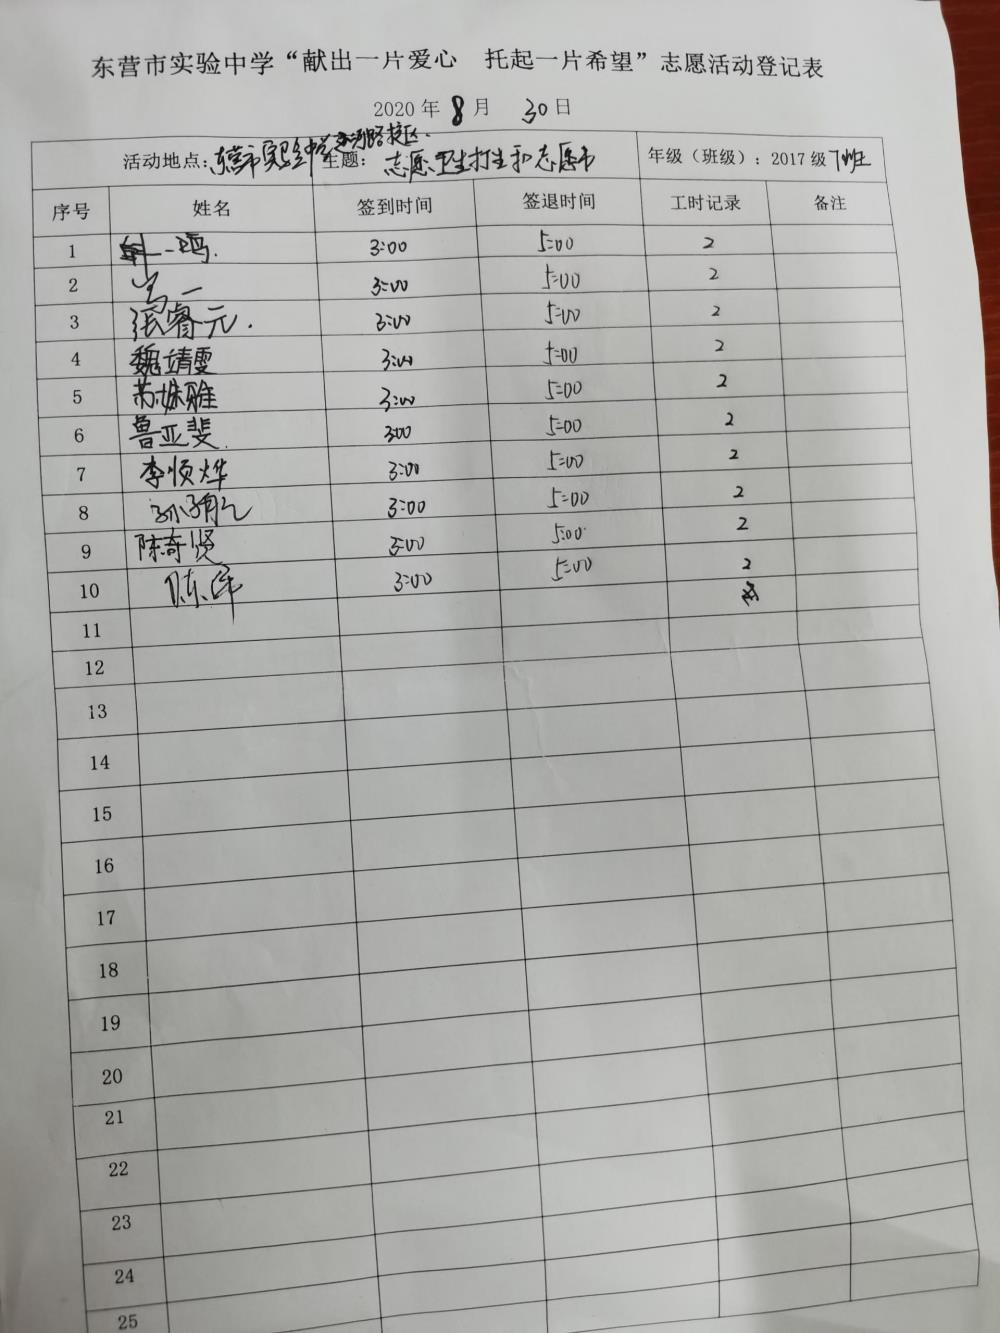 东营市实验中学“献出一片爱心 托起一片希望”志愿活动登记表
2020 年 8 月 30 日
活动地点：东营市实验中学 路校区 主题： 志愿卫生打生和志愿 年级（班级）：2017 级 7班
序号 姓名 签到时间 签退时间 工时记录 备注
1 一鸣. 3:00 5:00 2
2 一 3:00 5:00 2
3 张睿元. 3:00 5:00 2
4 魏靖雯 3:00 5:00 2
5 苏姝雅 3:00 5:00 2
6 鲁亚斐. 3:00 5:00 2
7 李顺烨 3:00 5:00 2
8 3:00 5:00 2
9 陈奇贤 3:00 5:00 2
10 陈 3:00 5:00 2
11
12
13
14
15
16
17
18
19
20
21
22
23
24
25